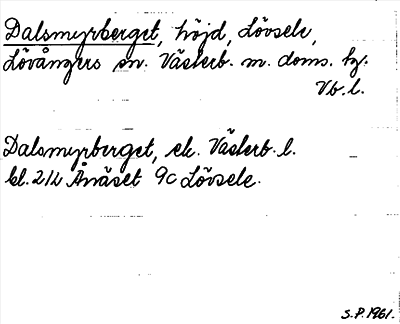 Dalsmyrberget, höjd, Lövsele,
Lövångers sn. Västerb. m. doms. tg.
Vb. l.
Dalsmyrberget, ek. Västerb. l.
bl. 21L Ånäset 9c Lövsele.
S.P. 1961.